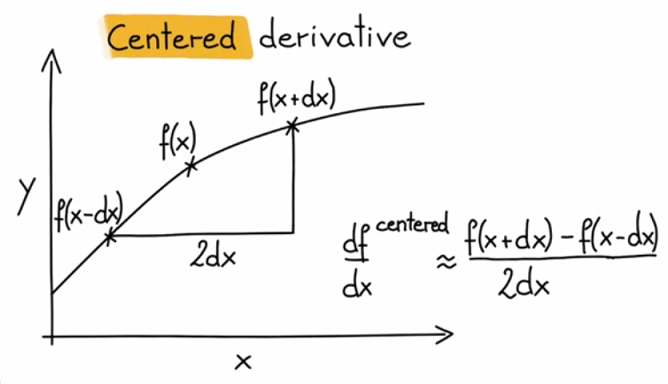 Centered derivative
f(x+dx)
f(x)
y
f(x-dx)
2dx
df centered
dx
≈
f(x+dx) - f(x-dx)
2dx
x